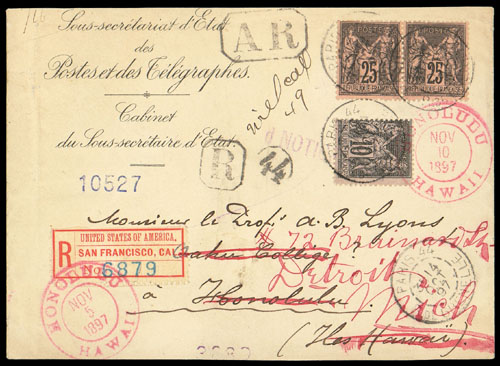 Sous-secrétariat d'Etat
des
Postes et des Télégraphes.
Cabinet
du Sous-secrétaire d'Etat.
AR
25
25
10
R
44
49
HONOLULU
NOV
10
1897
HAWAII
10527
R
UNITED STATES OF AMERICA.
SAN FRANCISCO, CAL
No 6879
Monsieur le Prof. A. B. Lyons
Oahu College
# 72 Brainard St
Detroit
à Honolulu
Mich
(Iles Hawaï)
HONOLULU
NOV
5
1897
HAWAII
PARIS